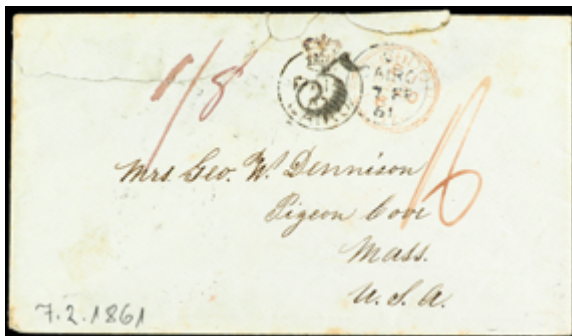 1/8
CAIRO
7 FE
61
Mrs. Geo. W. Dennison
Pigeon Cove
Mass.
U.S.A.
7.2.1861